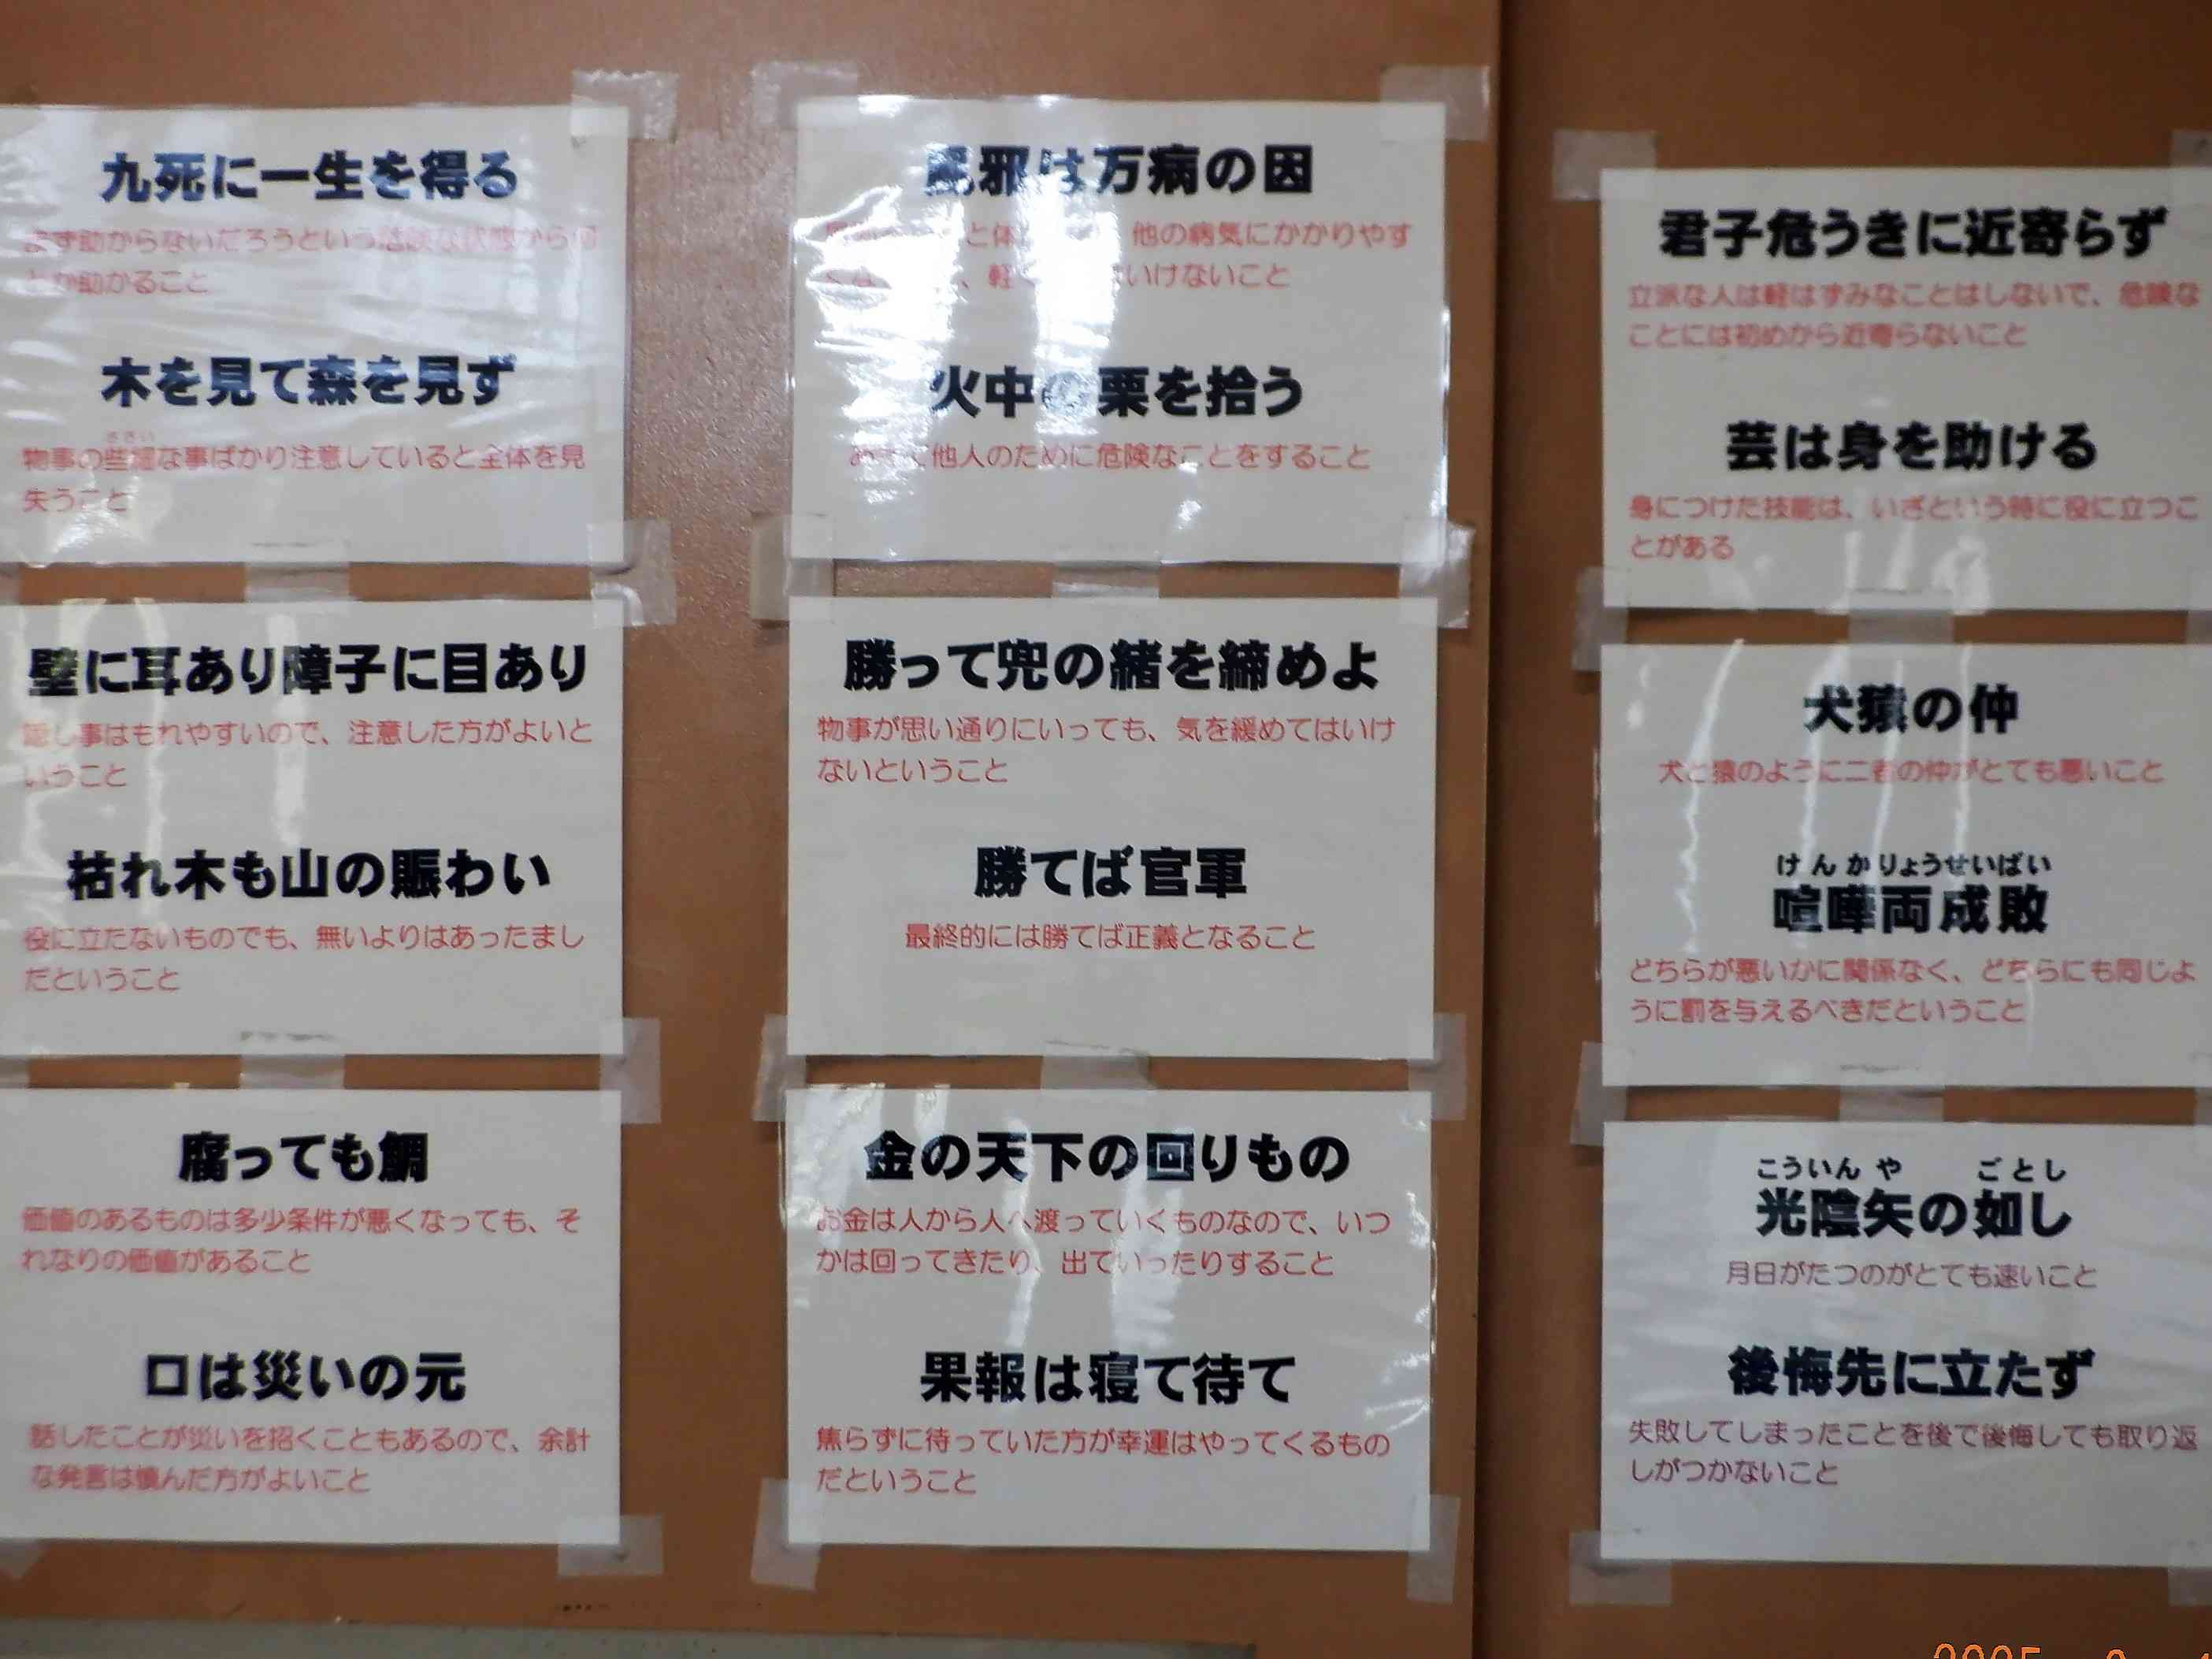 九死に一生を得る
まず助からないだろうという
とか助かること
木を見て森を見ず
ささい
物事の些細な事ばかり注意していると全体を見
失うこと
壁に耳あり障子に目あり
隠し事はもれやすいので、注意した方がよいと
いうこと
枯れ木も山の賑わい
役に立たないものでも、無いよりはあったまし
だということ
腐っても鯛
価値のあるものは多少条件が悪くなっても、そ
れなりの価値があること
口は災いの元
話したことが災いを招くこともあるので、余計
な発言は慎んだ方がよいこと
風邪は万病の因
と体 他の病気にかかりやす
、軽 いけないこと
火中の栗を拾う
他人のために危険なことをすること
勝って兜の緒を締めよ
物事が思い通りにいっても、気を緩めてはいけ
ないということ
勝てば官軍
最終的には勝てば正義となること
金の天下の回りもの
お金は人から人へ渡っていくものなので、いつ
かは回ってきたり、出ていったりすること
果報は寝て待て
焦らずに待っていた方が幸運はやってくるもの
だということ
君子危うきに近寄らず
立派な人は軽はずみなことはしないで、危険な
ことには初めから近寄らないこと
芸は身を助ける
身につけた技能は、いざという時に役に立つこ
とがある
犬猿の仲
犬と猿のように二者の仲がとても悪いこと
けんかりょうせいばい
喧嘩両成敗
どちらが悪いかに関係なく、どちらにも同じよ
うに罰を与えるべきだということ
こういん や ごとし
光陰矢の如し
月日がたつのがとても速いこと
後悔先に立たず
失敗してしまったことを後で後悔しても取り返
しがつかないこと